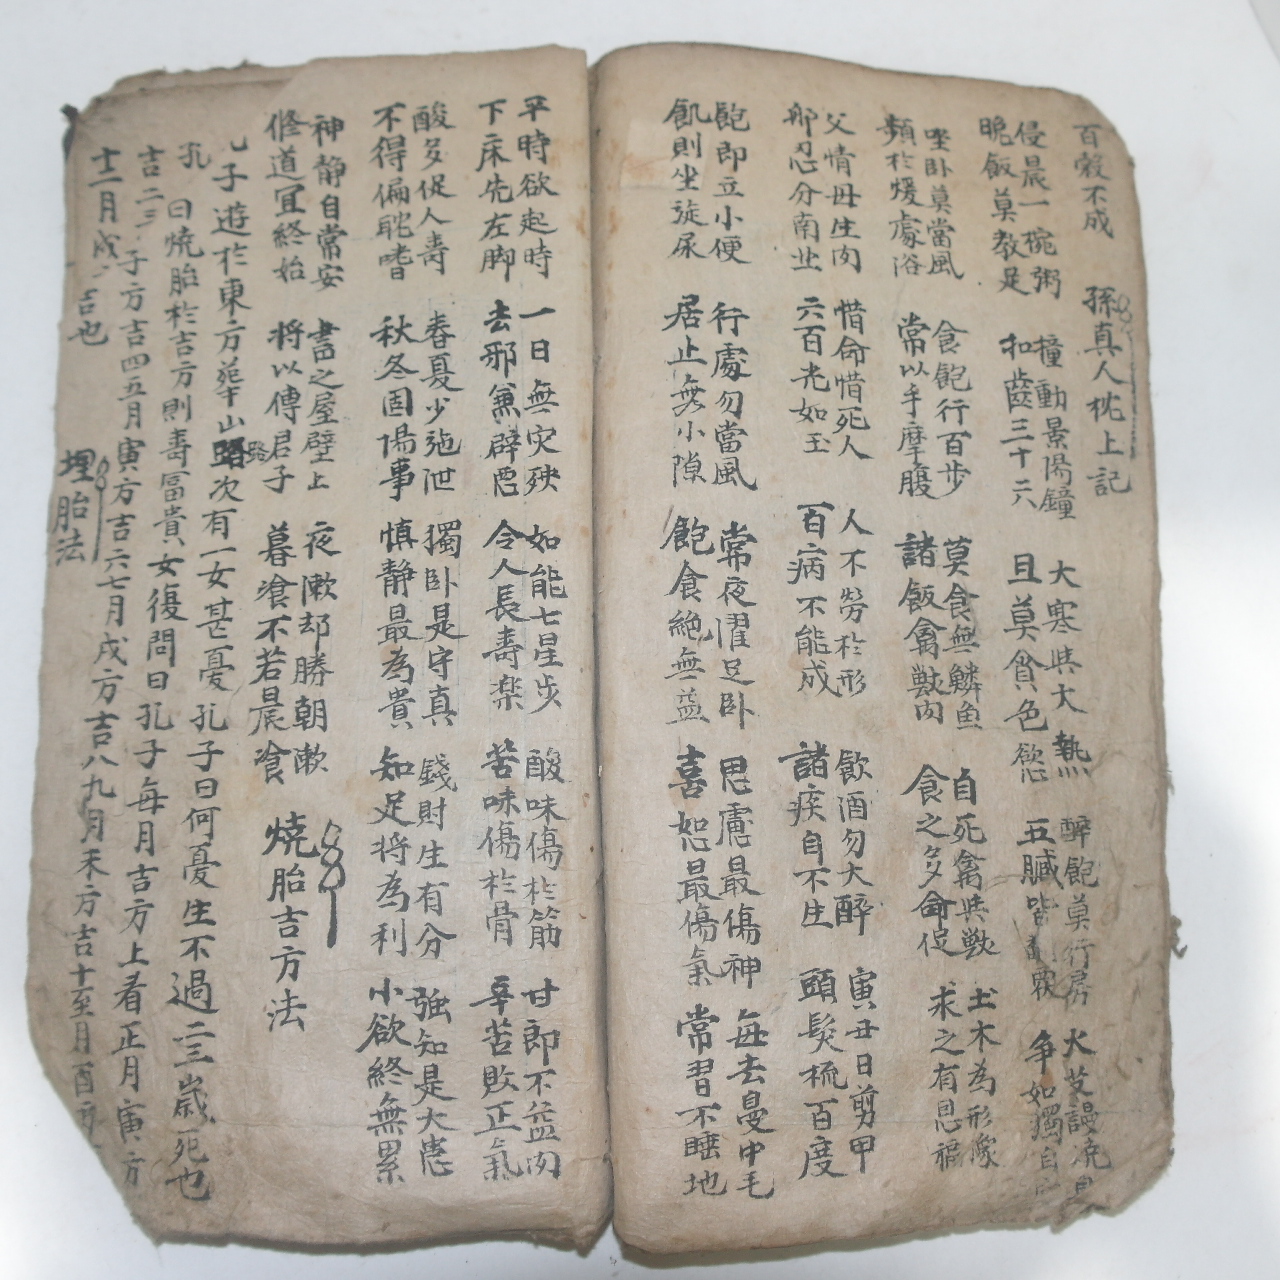 百穀不成 孫真人枕上記
侵晨一椀粥 撞動景陽鐘 大寒與大熱 醉飽莫行房 火艾謾燒身
晚飯莫教足 扣齒三十六 且莫貪色慾 五臟皆翻覆 争如獨自
坐卧莫當風 食飽行百步 莫食無鱗魚 自死禽與獸 土木為形像
頻於煖處浴 常以手摩腹 諸飯禽獸肉 食之多命促 求之有恩福
父情母生肉 惜命惜死人 人不勞於形 飲酒勿大醉 寅丑日剪甲
那忍分南北 六百光如玉 百病不能成 諸疾自不生 頭髮梳百度
飽即立小便 行處勿當風 常夜濯足卧 思慮最傷神 每去鼻中毛
飢則坐旋尿 居止無小隙 飽食絶無益 喜怒最傷氣 常習不睡地
平時欲起時 一日無灾殃 如能七星步 酸味傷於筋 甘即不益肉
下床先左脚 去邪兼辟惡 令人長壽樂 苦味傷於骨 辛苦敗正氣
酸多促人壽 春夏少施泄 獨卧是守真 錢財生有分 強知是大患
不得偏耽嗜 秋冬固陽事 慎静最為貴 知足將為利 小欲終無累
神静自常安 書之屋壁上 夜漱却勝朝漱
修道宜終始 將以傳君子 暮飡不若晨飡 燒胎吉方法
孔子遊於東方華山路次有一女甚憂孔子曰何憂生不過二三歲死也
孔曰燒胎於吉方則壽冨貴女復問曰孔子每月吉方上看正月寅方
吉二三子方吉四五月寅方吉六七月戌方吉八九月未方吉十至月酉方
十二月戌吉也 埋胎法